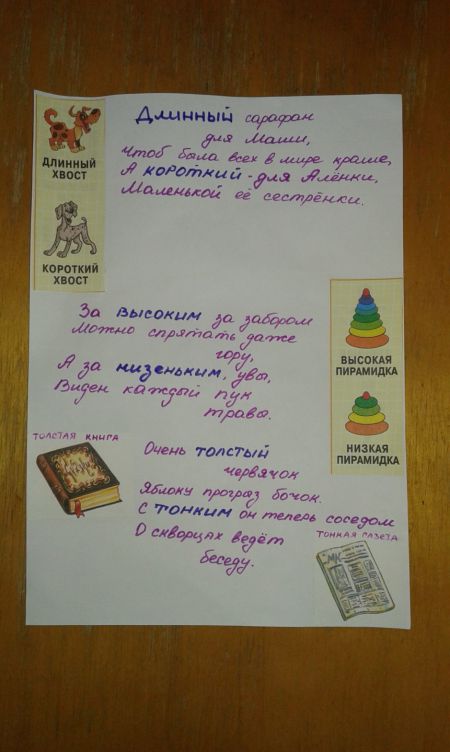 ДЛИННЫЙ
ХВОСТ
КОРОТКИЙ
ХВОСТ
Длинный сарафан
для Маши,
Чтоб была всех в мире краше,
А короткий - для Алёнки,
Маленькой её сестрёнки.
За высоким за забором
Можно спрятать даже
гору,
А за низеньким, увы,
Виден каждый пук
травы.
ВЫСОКАЯ
ПИРАМИДКА
НИЗКАЯ
ПИРАМИДКА
ТОЛСТАЯ КНИГА
Очень толстый
червячок
Яблоку прогрыз бочок.
С тонким он теперь соседом
О скворцах ведёт
беседу.
ТОНКАЯ ГАЗЕТА
МК